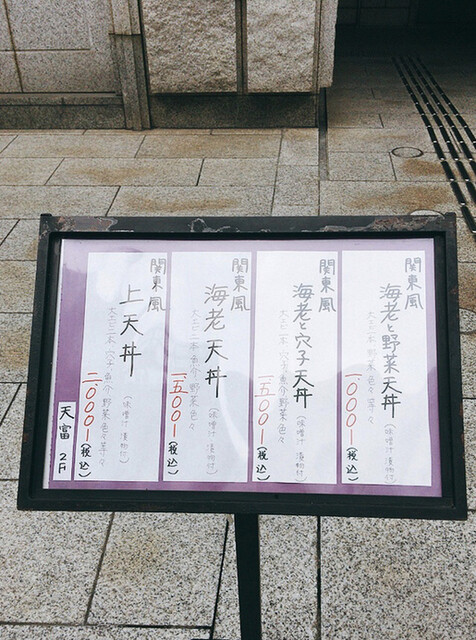 関東風
海老と野菜天丼
(味噌汁 漬物付)
大エビ一本 野菜 色々 等々
一〇〇〇ー(税込)
関東風
海老と穴子天丼
(味噌汁 漬物付)
穴子 魚介 野菜 色々
一五〇〇ー(税込)
関東風
海老天丼
(味噌汁 漬物付)
魚介 野菜 色々
一五〇〇ー(税込)
関東風
上天丼
(味噌汁 漬物付)
大エビ二本 穴子 魚介 野菜 色々 等々
二〇〇〇ー(税込)
天富 2F